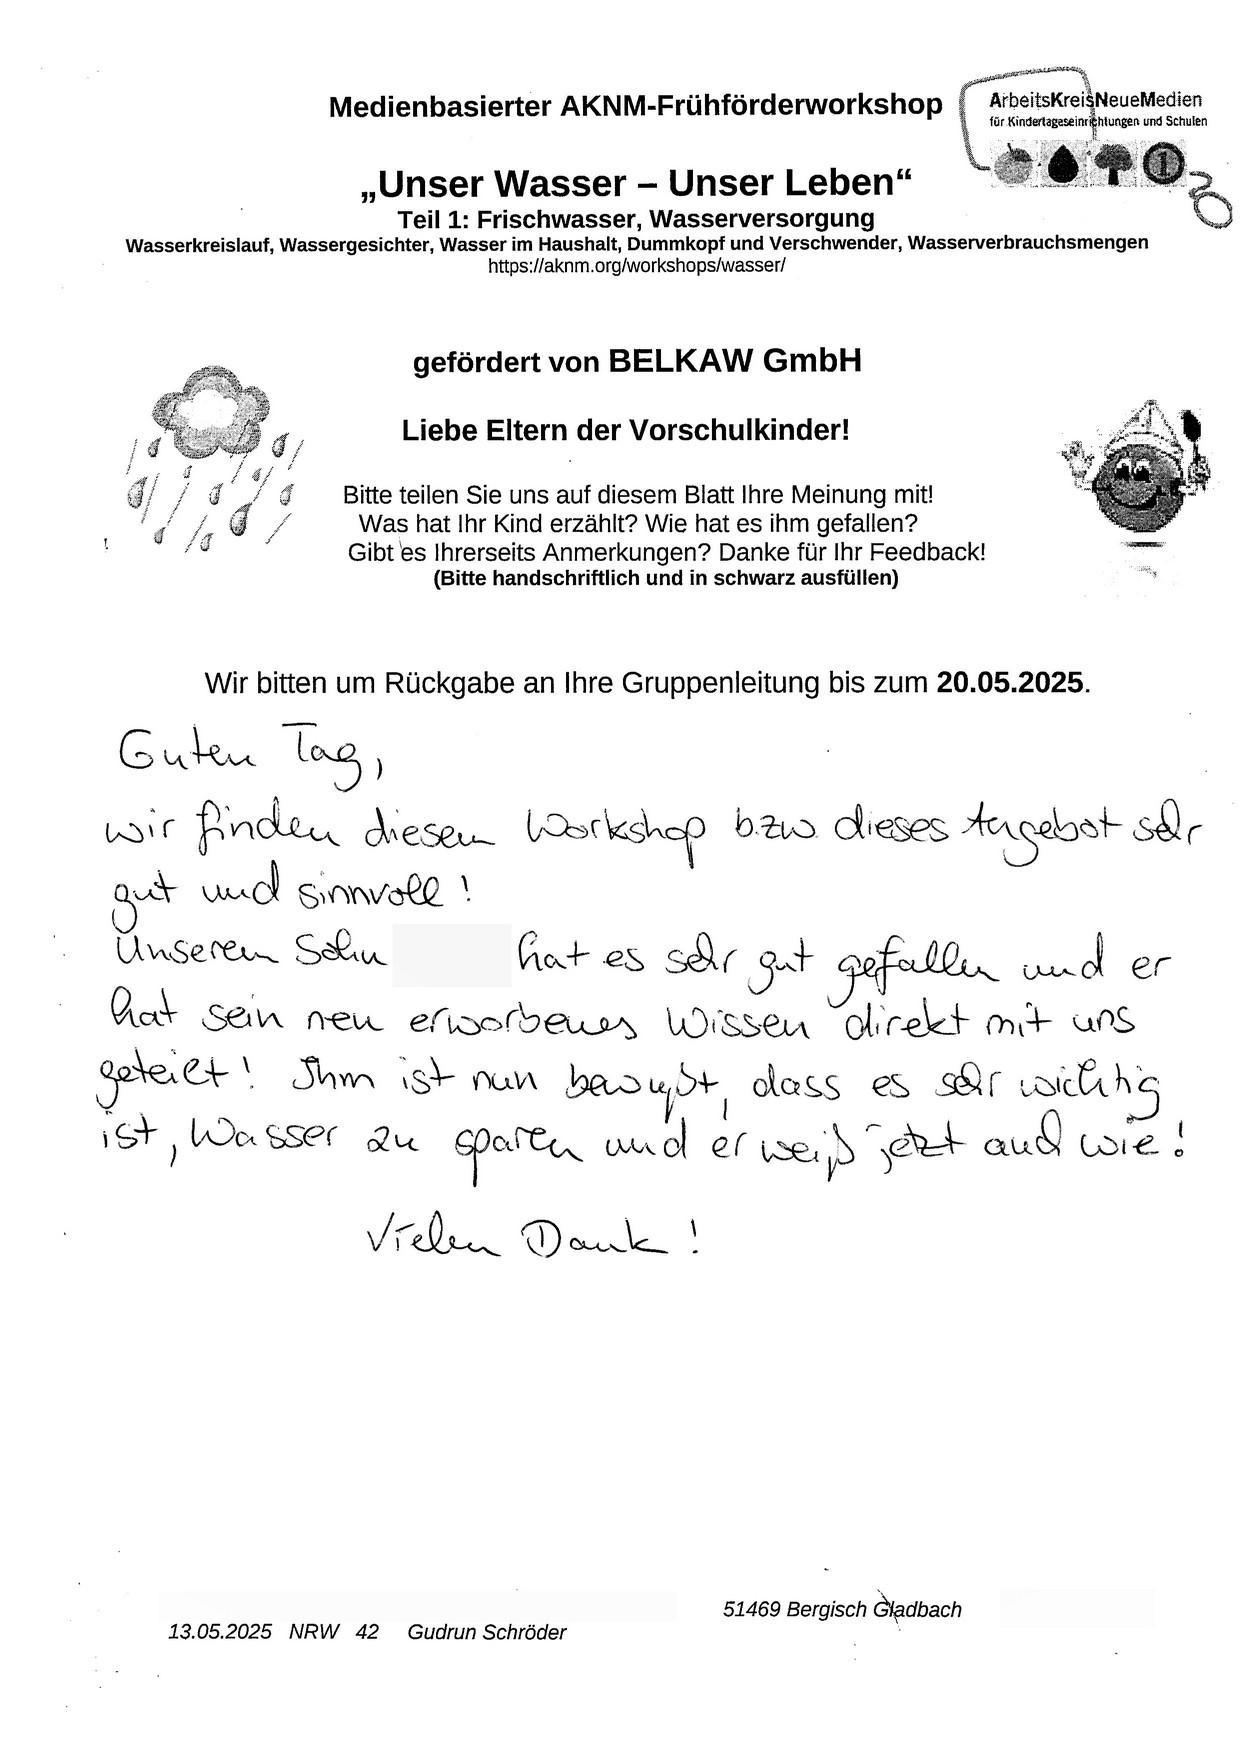 Medienbasierter AKNM-Frühförderworkshop
ArbeitsKreisNeueMedien
für Kindertageseinrichtungen und Schulen
„Unser Wasser – Unser Leben“
Teil 1: Frischwasser, Wasserversorgung
Wasserkreislauf, Wassergesichter, Wasser im Haushalt, Dummkopf und Verschwender, Wasserverbrauchsmengen
https://aknm.org/workshops/wasser/
gefördert von BELKAW GmbH
Liebe Eltern der Vorschulkinder!
Bitte teilen Sie uns auf diesem Blatt Ihre Meinung mit!
Was hat Ihr Kind erzählt? Wie hat es ihm gefallen?
Gibt es Ihrerseits Anmerkungen? Danke für Ihr Feedback!
(Bitte handschriftlich und in schwarz ausfüllen)
Wir bitten um Rückgabe an Ihre Gruppenleitung bis zum 20.05.2025.
Guten Tag,
wir finden diesen Workshop bzw. dieses Angebot sehr
gut und sinnvoll!
Unseren Sohn hat es sehr gut gefallen und er
hat sein neu erworbenes Wissen direkt mit uns
geteilt! Ihm ist nun bewußt, dass es sehr wichtig
ist, Wasser zu sparen und er weiß jetzt auch wie!
Vielen Dank!
51469 Bergisch Gladbach
13.05.2025 NRW 42 Gudrun Schröder